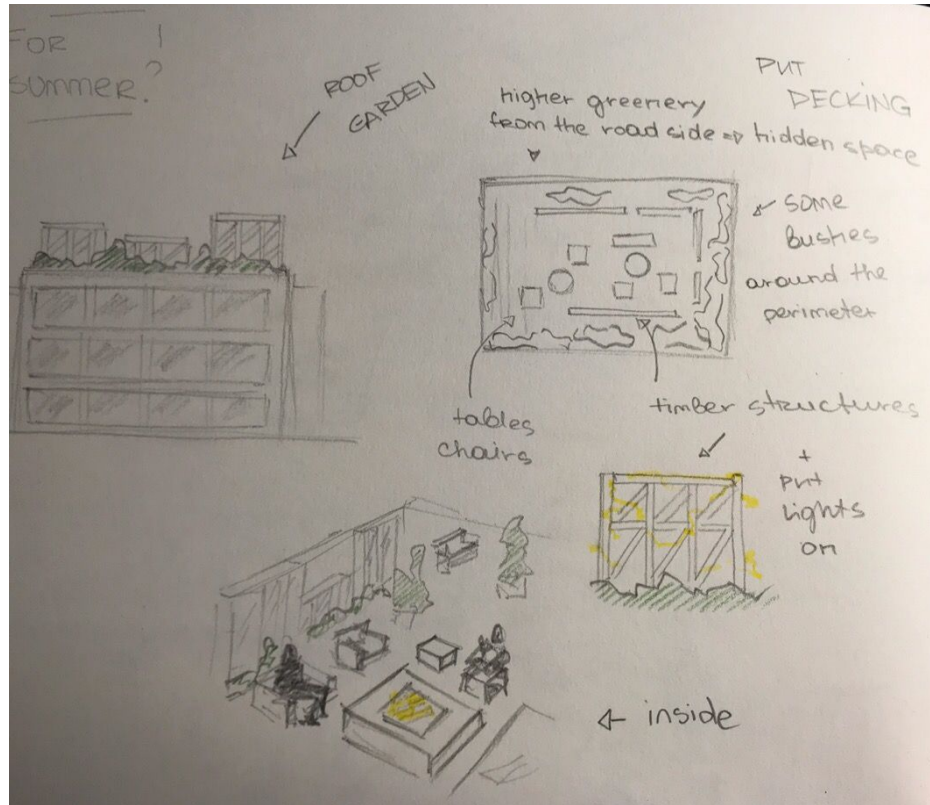 FOR !
SUMMER?
ROOF
GARDEN
PUT
DECKING
higher greenery
from the road side => hidden space
some
bushes
around the
perimeter
tables
chairs
timber structures
+
put
lights
on
inside